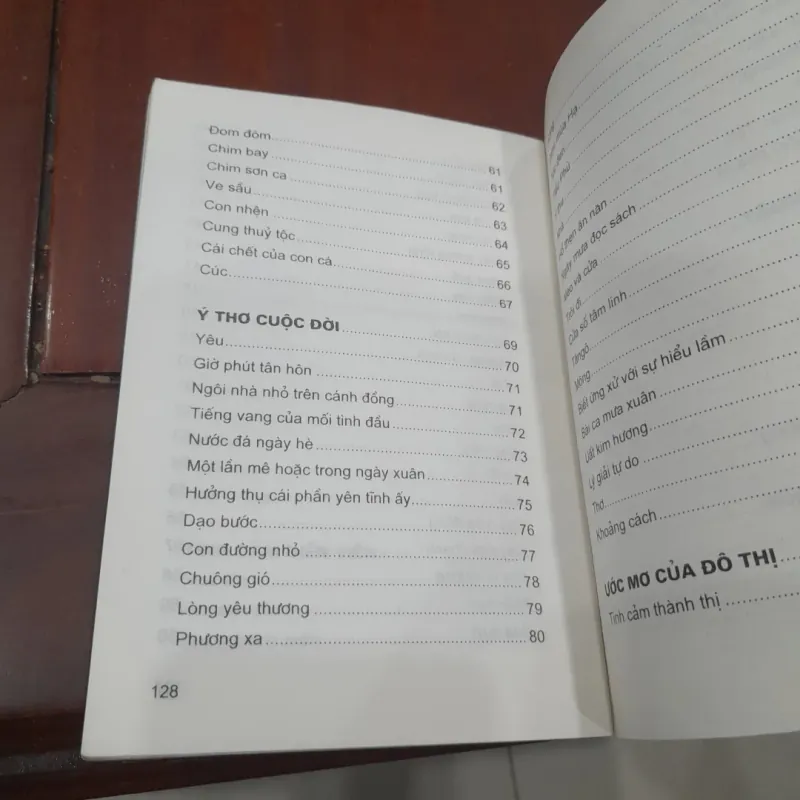 Đom đóm.....61
Chim bay.....61
Chim sơn ca.....62
Ve sầu.....63
Con nhện.....64
Cung thuỷ tộc.....65
Cái chết của con cá.....66
Cúc.....67
Ý THƠ CUỘC ĐỜI.....69
Yêu.....70
Giờ phút tân hôn.....71
Ngôi nhà nhỏ trên cánh đồng.....71
Tiếng vang của mối tình đầu.....72
Nước đá ngày hè.....73
Một lần mê hoặc trong ngày xuân.....74
Hưởng thụ cái phần yên tĩnh ấy.....75
Dạo bước.....76
Con đường nhỏ.....77
Chuông gió.....78
Lòng yêu thương.....79
Phương xa.....80
128
Hạ.....
thẹn ăn năn.....
Ngày mưa đọc sách
và cửa.....
Trôi đi.....
Cửa sổ tâm linh
Tăngô.....
Mộng.....
Biết ứng xử với sự hiểu lầm
Bài ca mưa xuân.....
Uất kim hương.....
Lý giải tự do.....
Thơ.....
Khoảng cách.....
ƯỚC MƠ CỦA ĐÔ THỊ.....
Tình cảm thành thị.....